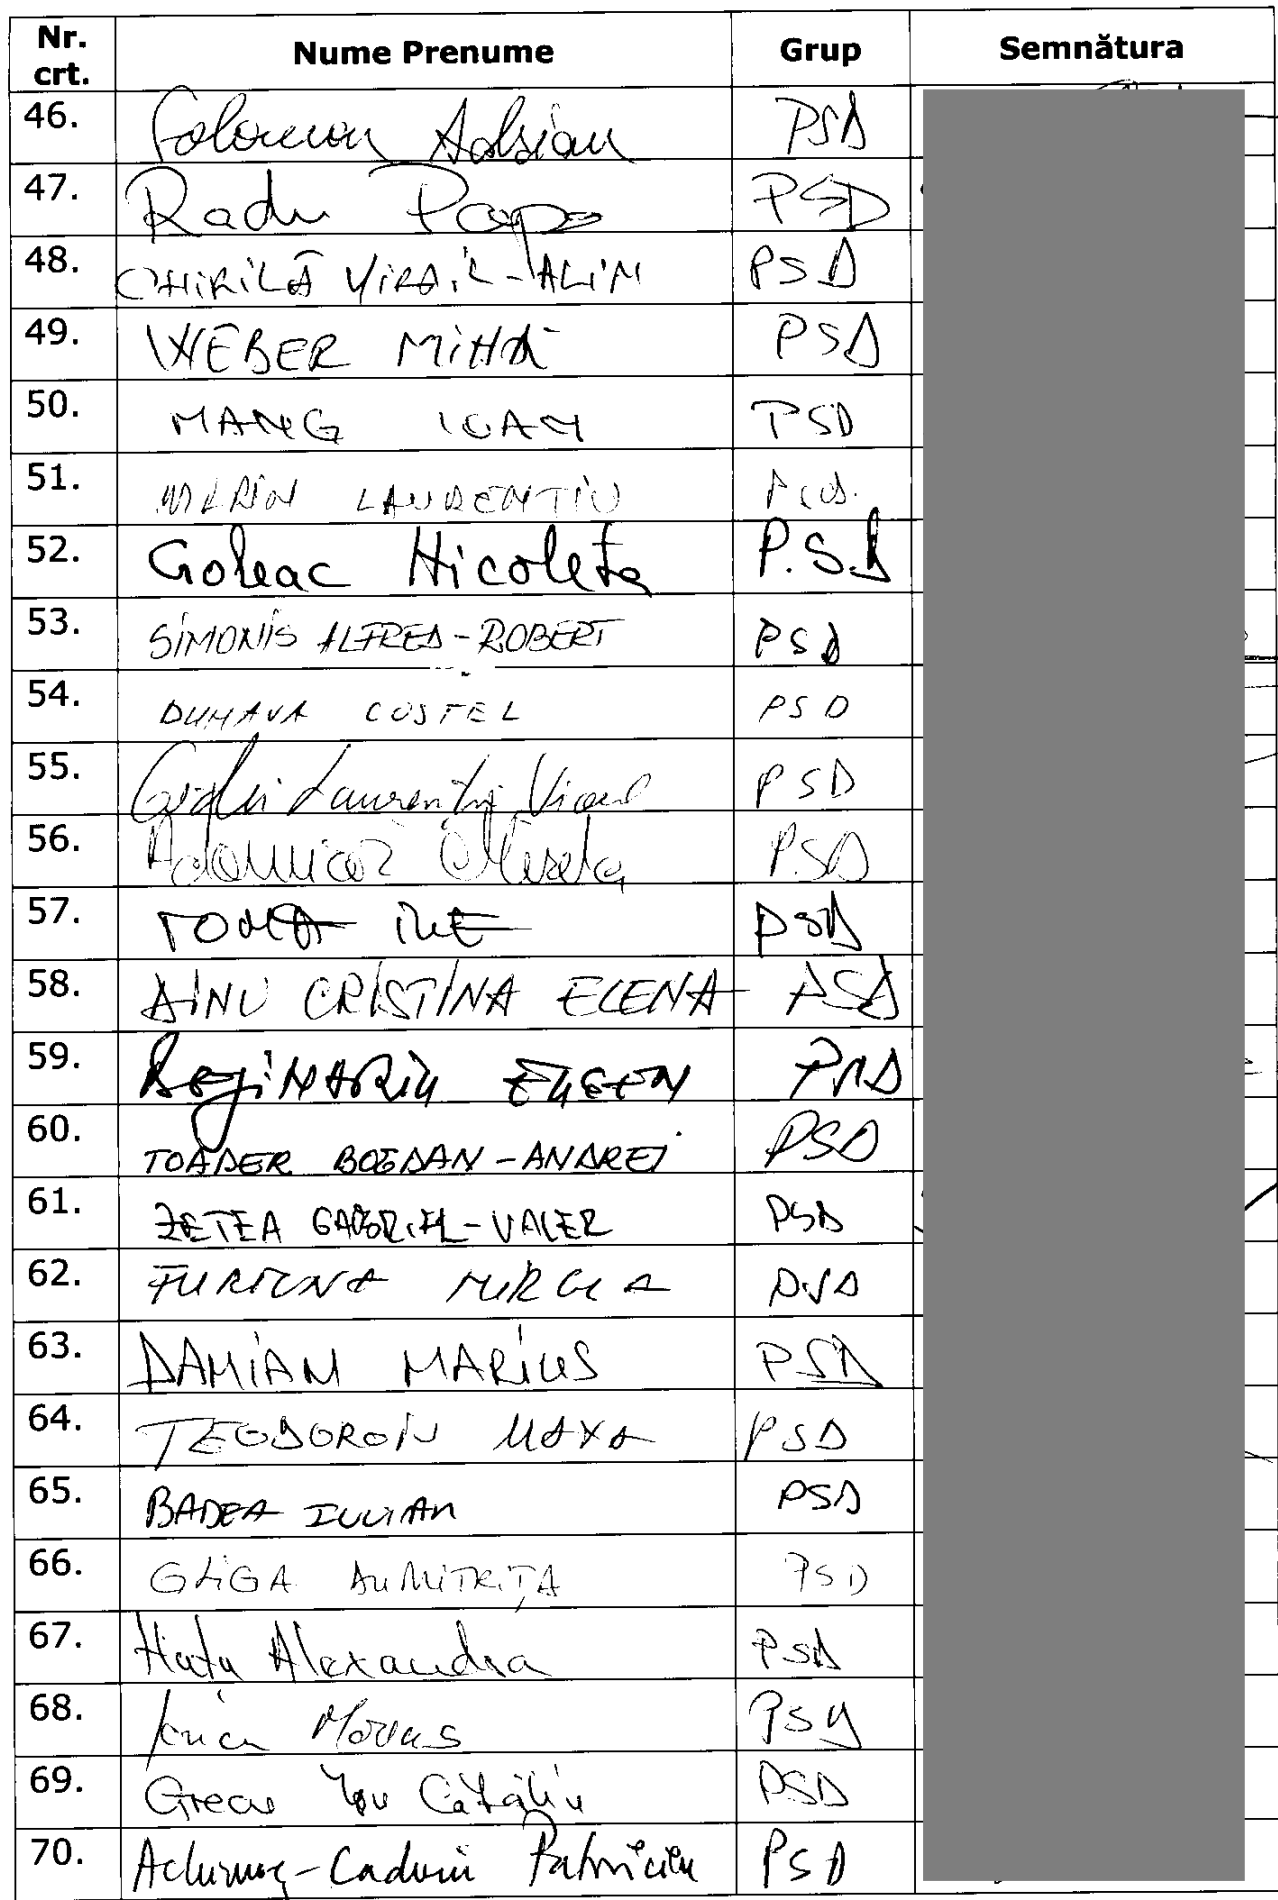 Nr. crt. Nume Prenume Grup Semnătura
46. Solomon Adrian PSD
47. Radu Popa PSD
48. CHIRILĂ VIRGIL-ALIN PSD
49. WEBER MIHAI PSD
50. MANG IOAN PSD
51. MARIN LAURENTIU PSD
52. Goleac Nicoleta P.S.D
53. SIMONIS ALFRED-ROBERT PSD
54. DUNAVA COSTEL PSD
55. Laurentiu Viorel PSD
56. Adomnicăi Mirela PSD
57. TOMA ILIE PSD
58. DINU CRISTINA ELENA PSD
59. BEJINARIU EUGEN PSD
60. TOADER BOGDAN-ANDREI PSD
61. ZETEA GABRIEL-VALER PSD
62. FURTUNA MIRCEA PSD
63. DAMIAN MARIUS PSD
64. TEODOROIU MAXA PSD
65. BADEA IULIAN PSD
66. GLIGA DUMITRIȚA PSD
67. Huțu Alexandra PSD
68. PSD
69. Grecu Ion Cătălin PSD
70. PSD